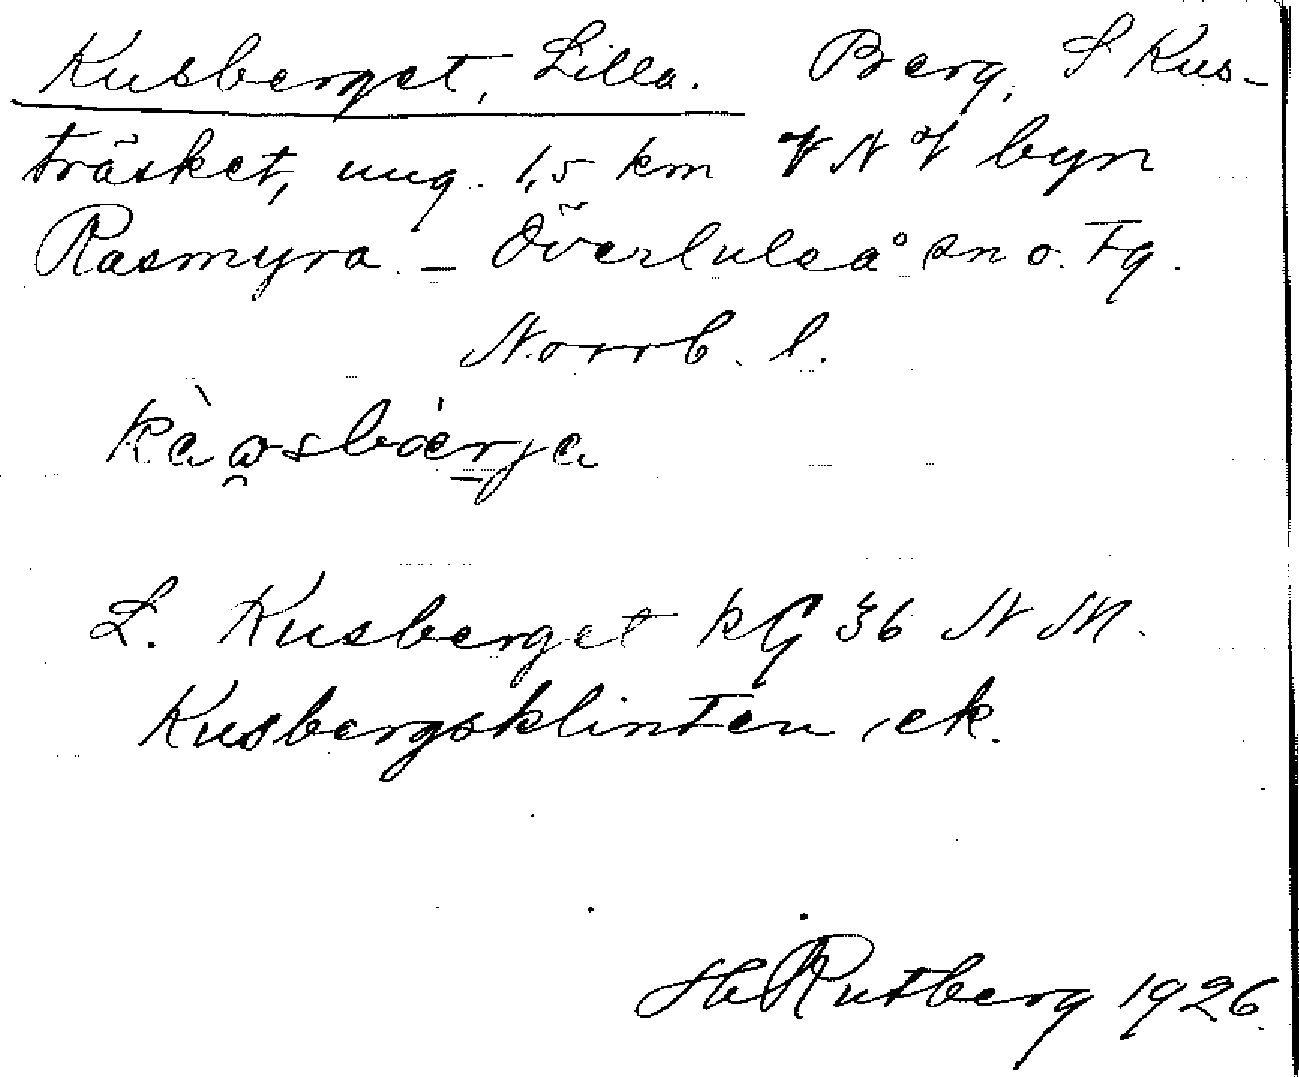 Kusberget, Lilla. Berg, S Kus-
träsket, ung. 1,5 km VNV byn
Rasmyra. – Överluleå sn o. Tg.
Norrb. l.
L. Kusberget kG 36 NM.
Kusbergsklinten, ek.
Hb Rutberg 1926.